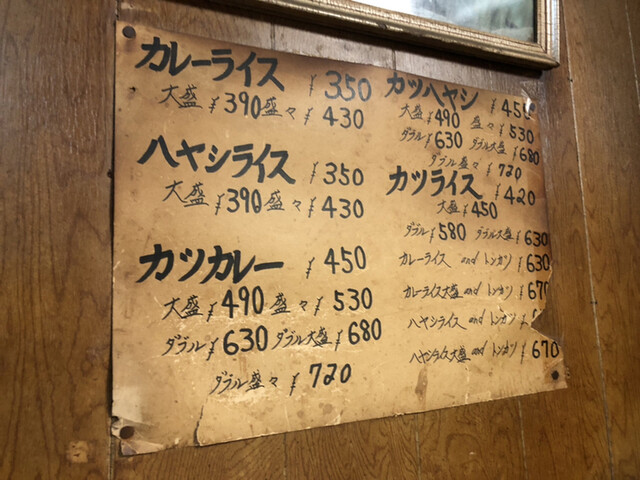 カレーライス ¥350
大盛 ¥390 盛々 ¥430
ハヤシライス ¥350
大盛 ¥390 盛々 ¥430
カツカレー ¥450
大盛 ¥490 盛々 ¥530
ダブル ¥630 ダブル大盛 ¥680
ダブル盛々 ¥720
カツハヤシ ¥450
大盛 ¥490 盛々 ¥530
ダブル ¥630 ダブル大盛 ¥680
ダブル盛々 ¥720
カツライス ¥420
大盛 ¥450
ダブル ¥580 ダブル大盛 ¥630
カレーライス and トンカツ ¥630
カレーライス大盛 and トンカツ ¥670
ハヤシライス and トンカツ ¥
ハヤシライス大盛 and トンカツ ¥670